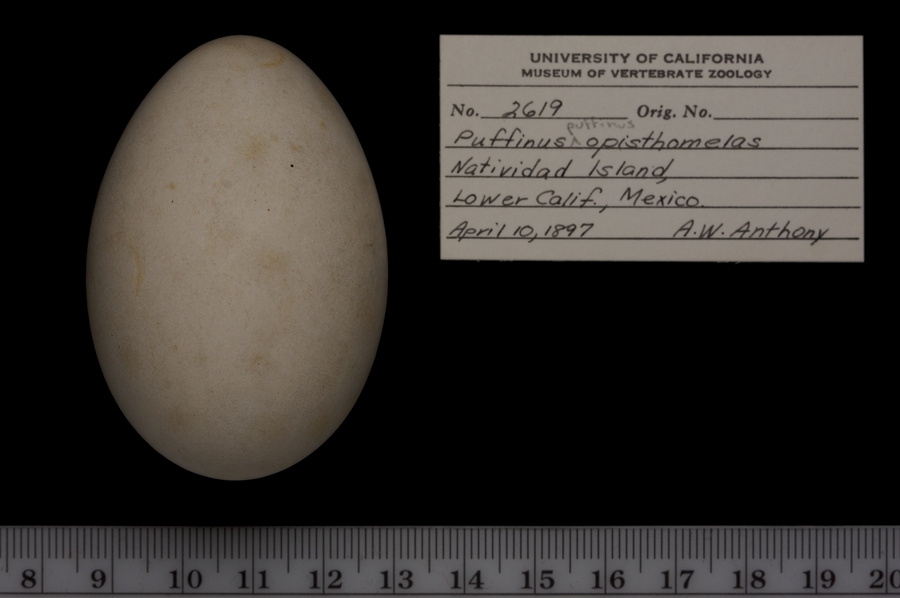 UNIVERSITY OF CALIFORNIA
MUSEUM OF VERTEBRATE ZOOLOGY
No. 2619 Orig. No.
puffinus
Puffinus ^ opisthomelas
Natividad Island,
Lower Calif., Mexico.
April 10, 1897 A.W. Anthony
8 9 10 11 12 13 14 15 16 17 18 19 20